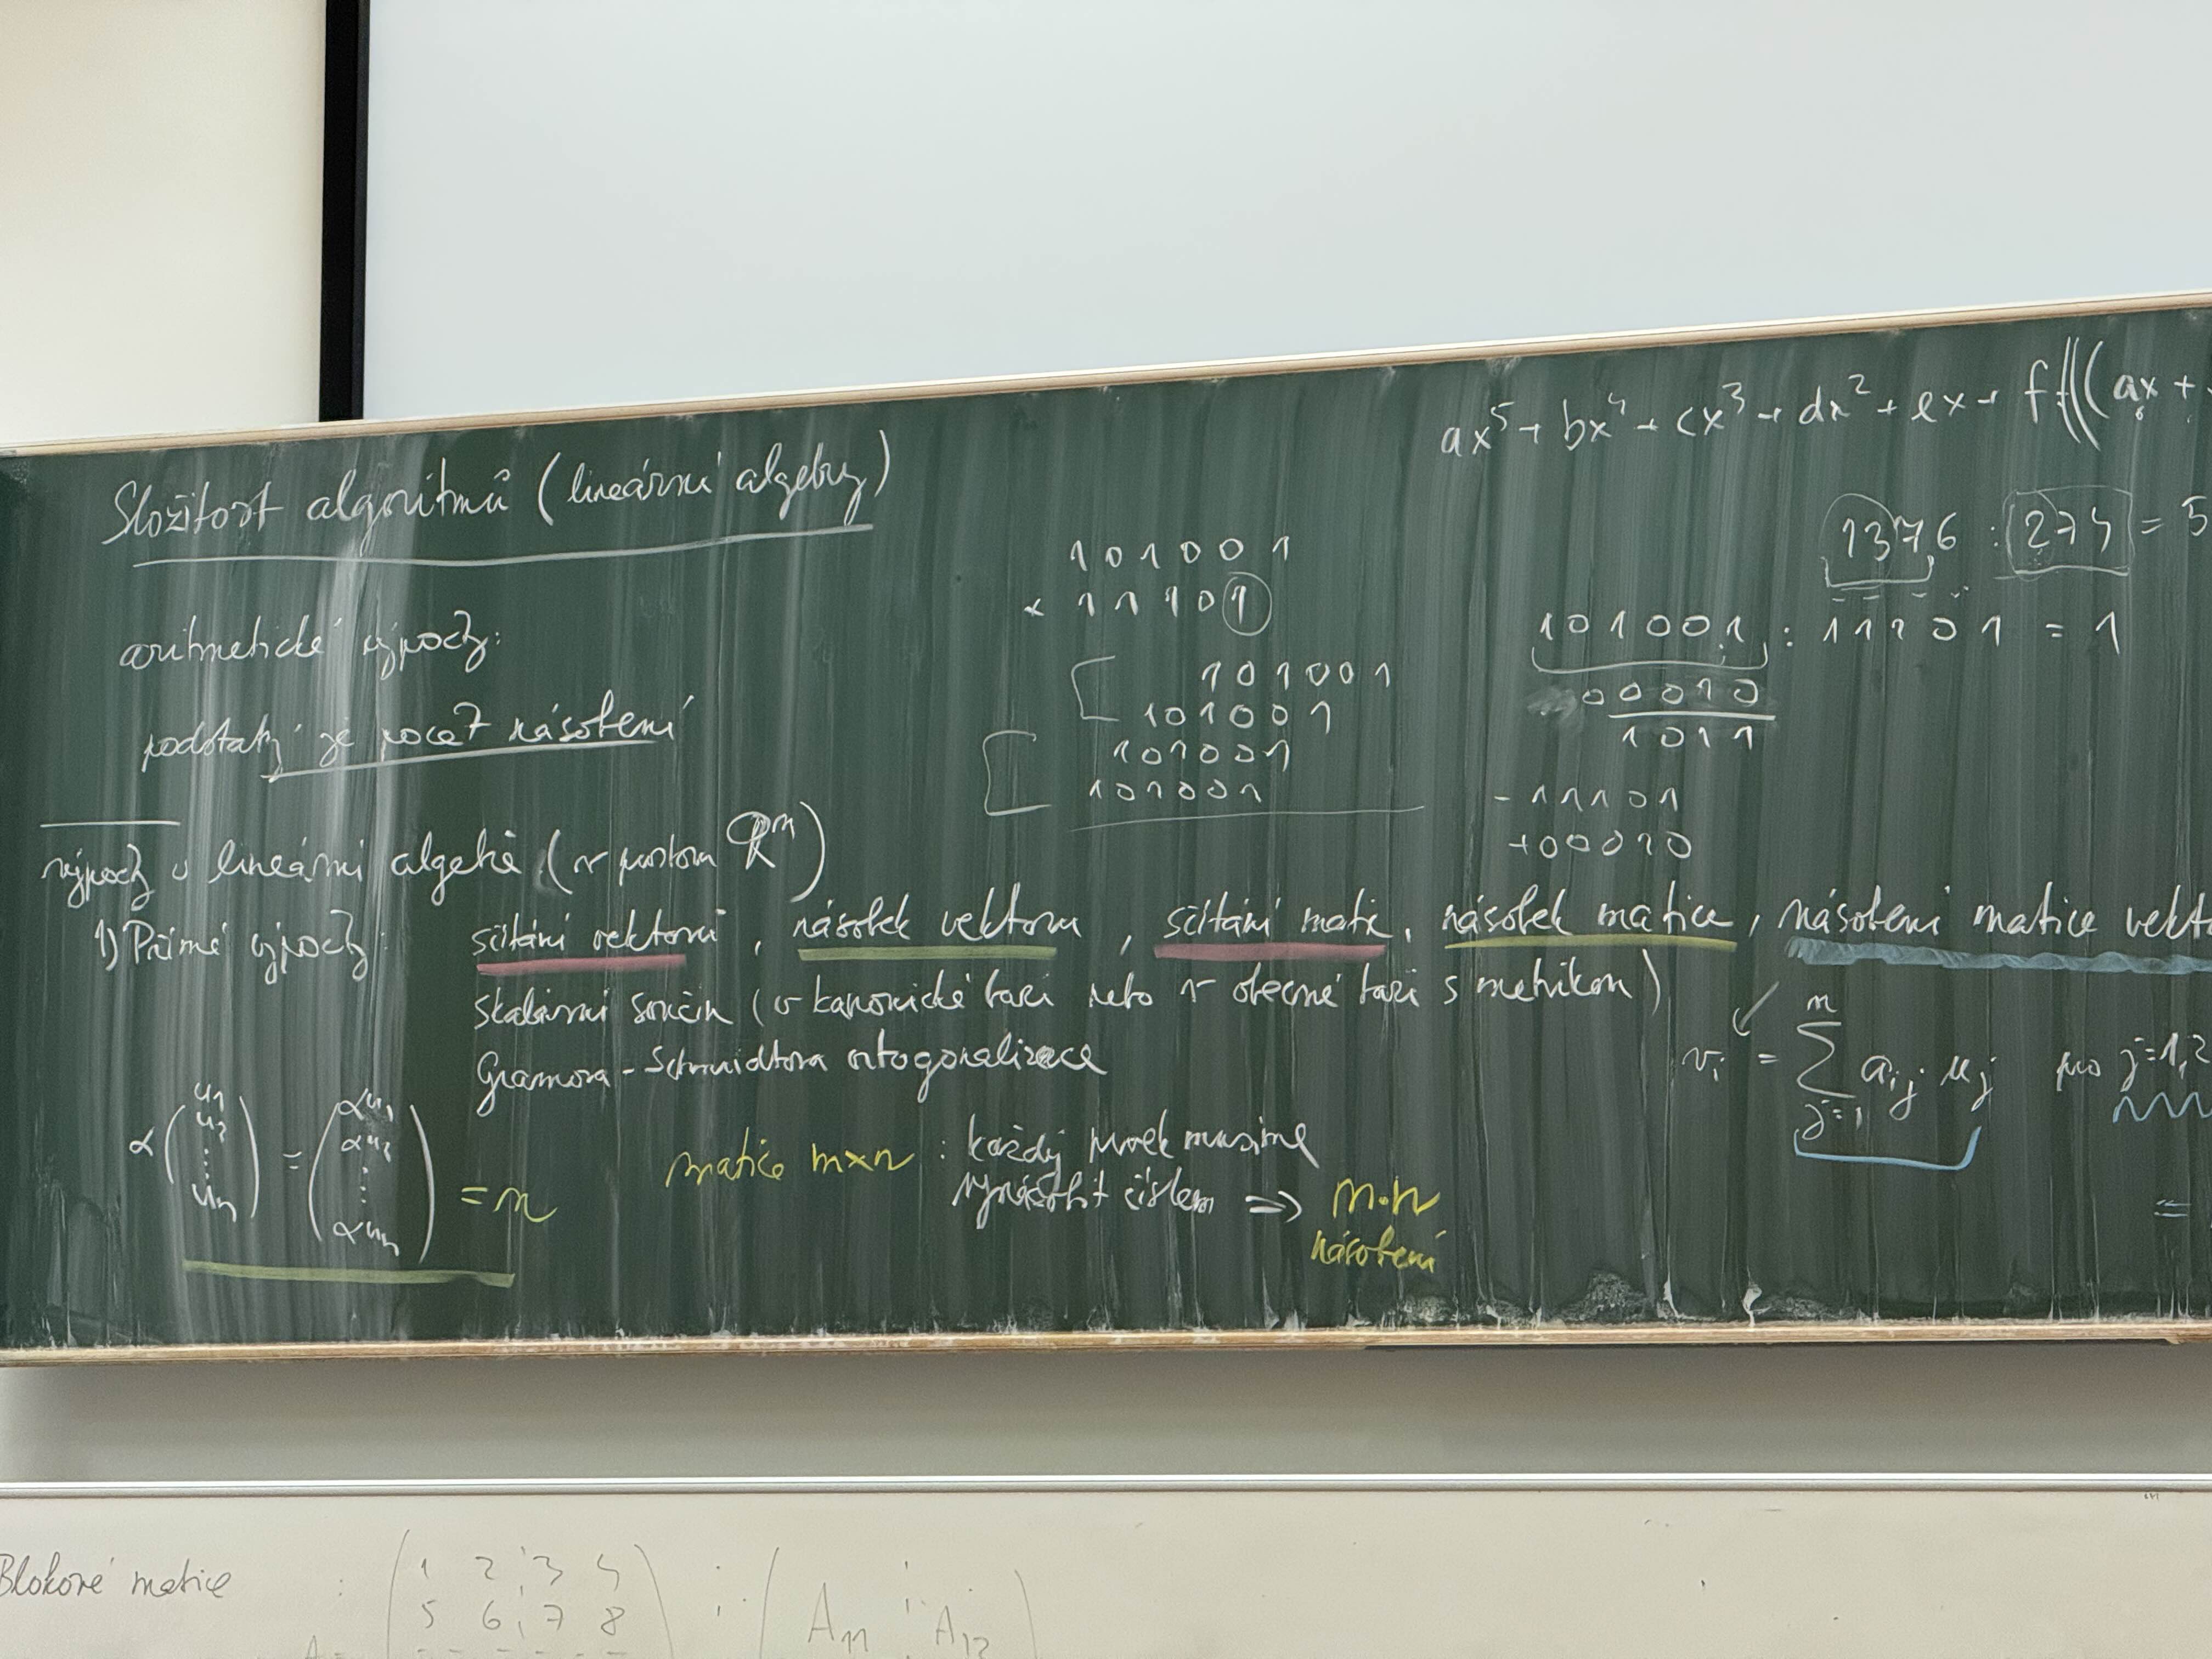 Složitost algoritmů (lineární algebry)
aritmetické výpočty:
podstatný je počet násobení
101001
× 11101
101001
101001
101001
101001
ax⁵ + bx⁴ + cx³ + dx² + ex + f (((ax +
1376 : 274 = 5
101001 : 11101 = 1
00010
1011
- 11101
+00010
výpočty v lineární algebře (v prostoru Rⁿ)
1) Přímé výpočty: sčítání vektorů, násobek vektoru, sčítání matic, násobek matice, násobení matice vekto
skalární součin (v kanonické bazi nebo v obecné bazi s metrikou)
Gramova-Schmidtova ortogonalizace
vᵢ = Σⁿⱼ₌₁ aᵢⱼ uⱼ pro j=1,2
α (u₁ u₂ ⋮ uₙ) = (αu₁ αu₂ ⋮ αuₙ) = n
matice m×n : každý prvek musíme
vynásobit číslem ⇒ m·n
násobení
=
Blokové matice : 1 2 3 4
5 6 7 8
A₁₁ A₁₂
A =